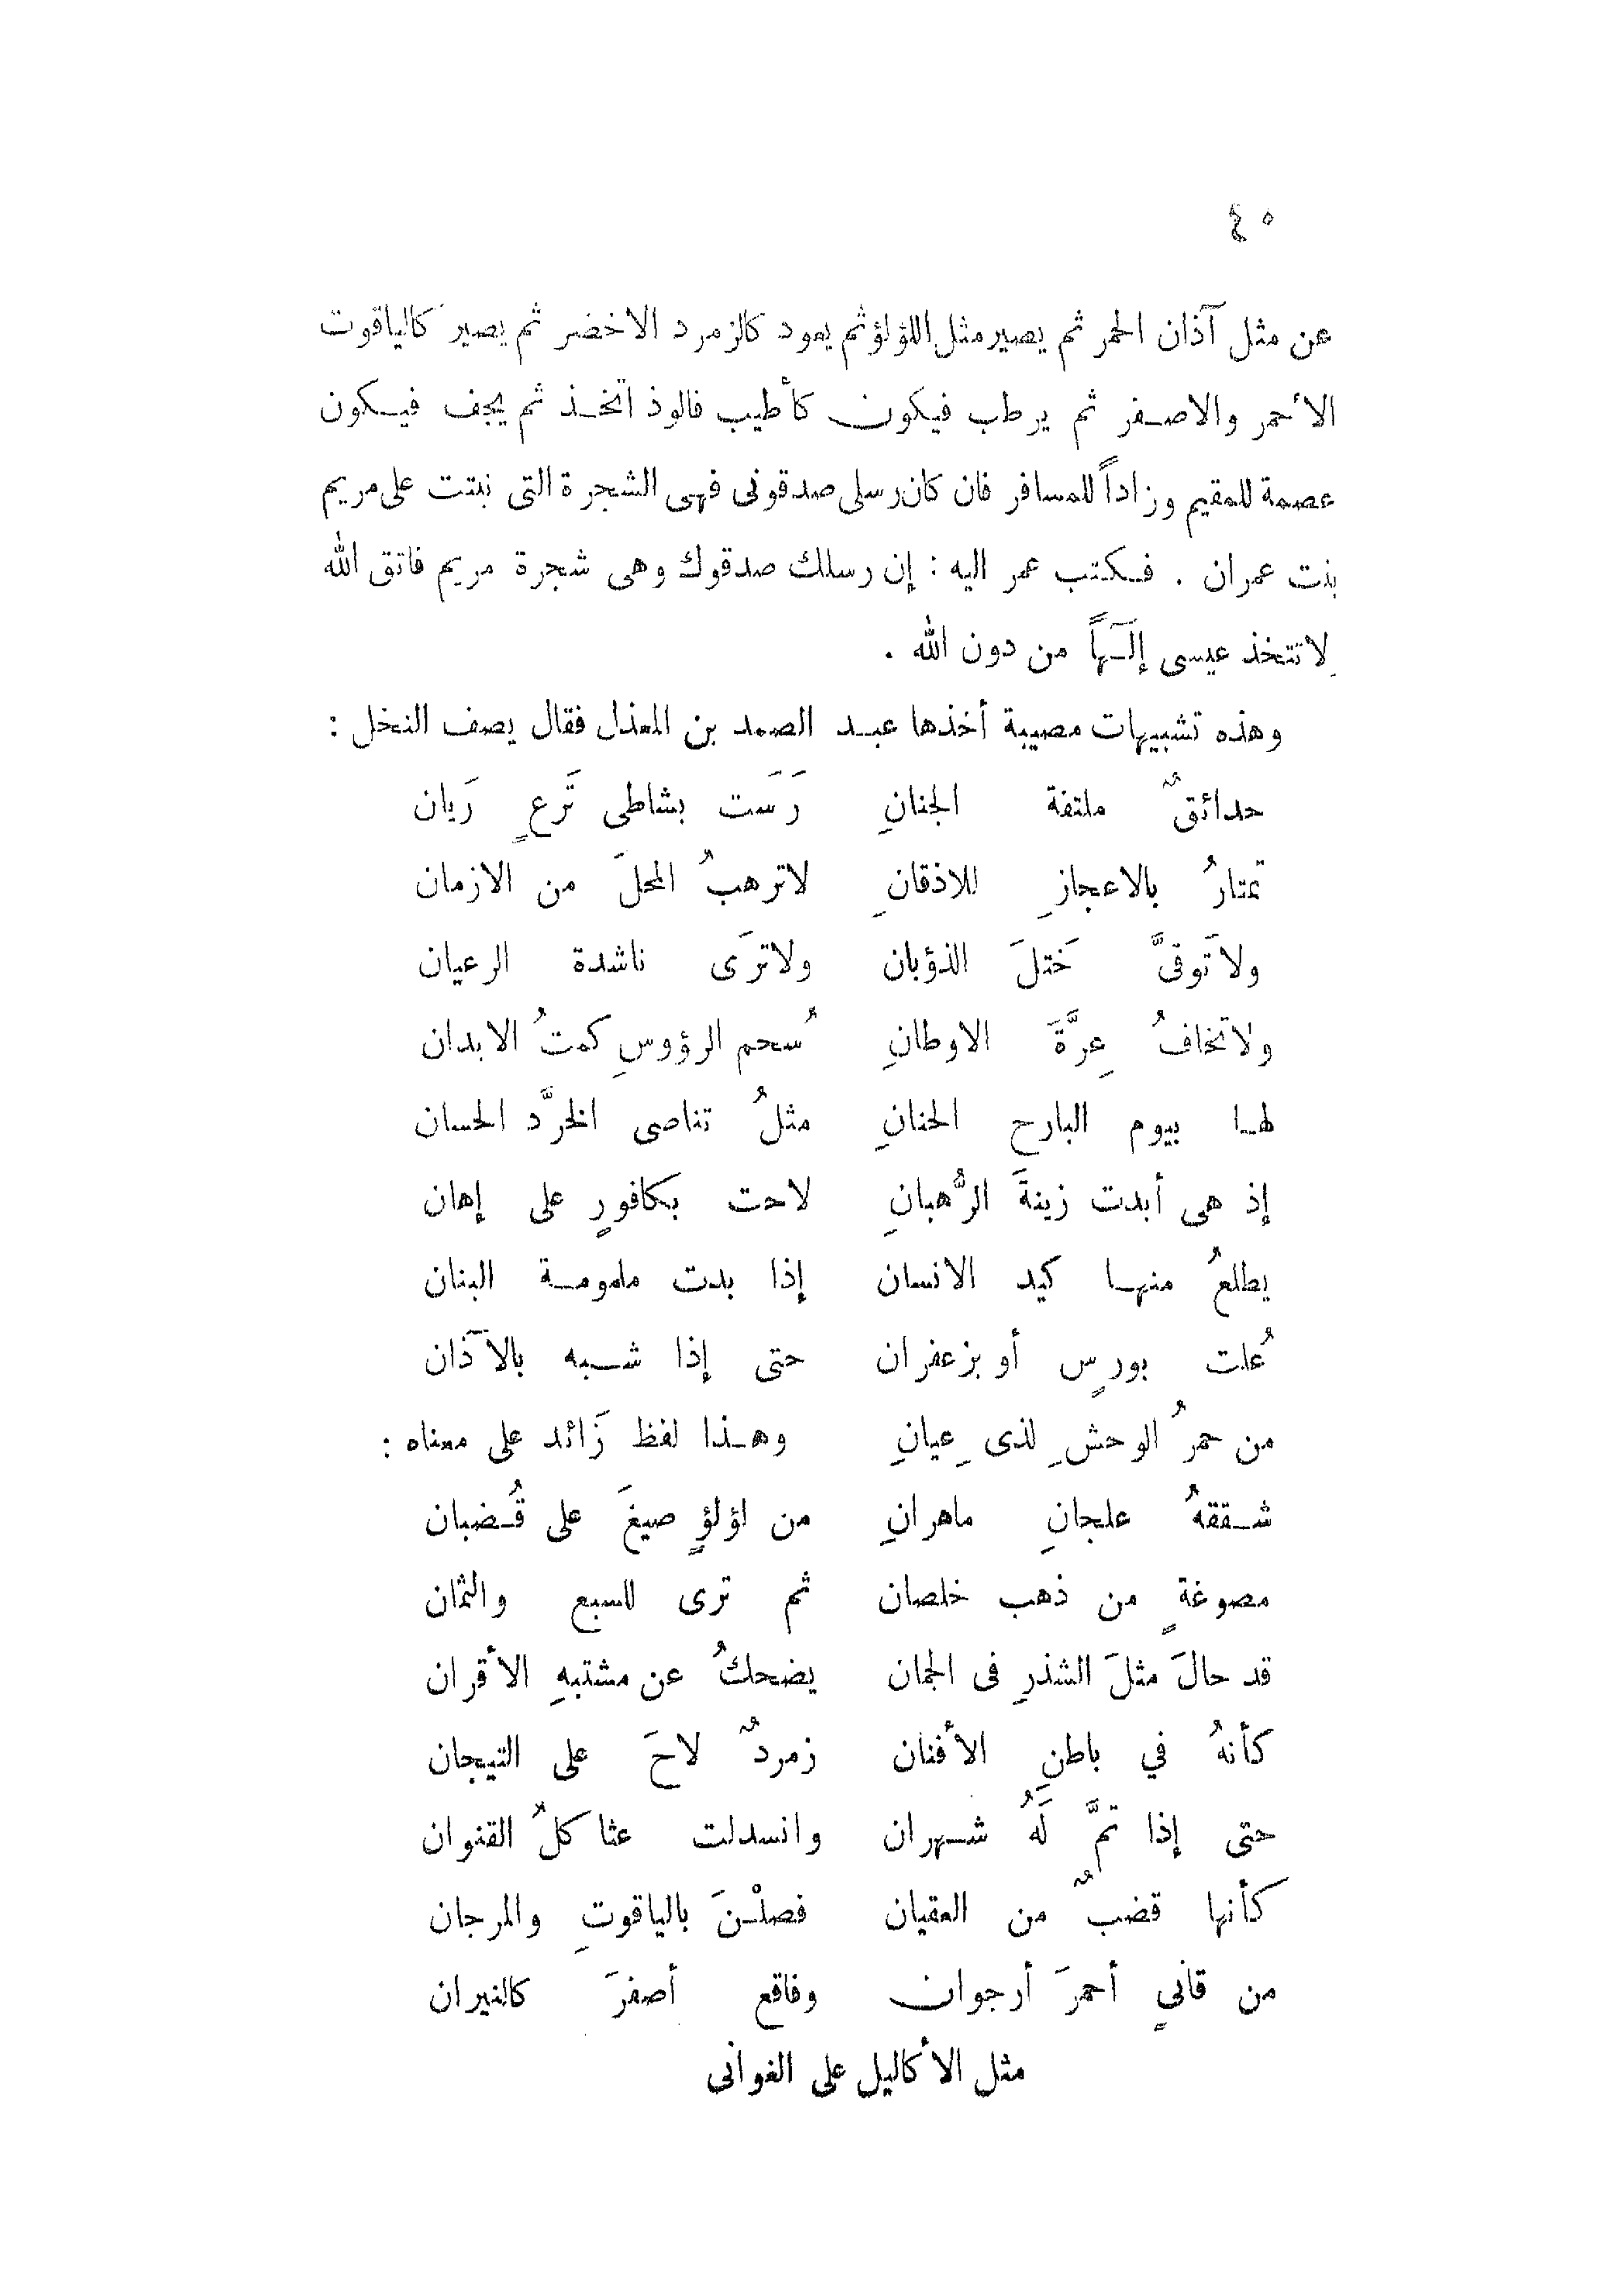 ٤٠
عن مثل آذان الحمر ثم يصير مثل اللؤلؤ ثم يعود كالزمرد الاخضر ثم يصير كالياقوت
الأحمر والاصفر ثم يرطب فيكون كأطيب فالوذ اتخذ ثم يجف فيكون
عصمة للمقيم وزاداً للمسافر فان كان رسلى صدقونى فهى الشجرة التى نبتت على مريم
بنت عمران . فكتب عمر اليه : إن رسلك صدقوك وهى شجرة مريم فاتق الله
لاتتخذ عيسى إلَهاً من دون الله .
وهذه تشبيهات مصيبة أخذها عبد الصمد بن المعذل فقال يصف النخل :
حدائقٌ ملتفة الجنانِ رَسَت بشاطى تَرعٍ رَيان
تمتارُ بالاعجازِ للاذقانِ لاترهبُ المحلَ من الازمان
ولاتَوقىَّ خَتلَ الذؤبان ولاترَى ناشدة الرعيان
ولاتخافُ عِرَّةَ الاوطانِ سُحم الرؤوسِ كمتُ الابدان
لها بيوم البارح الحنانِ مثلُ تناصى الخرَّد الحسان
إذ هى أبدت زينةَ الرُّهبانِ لاحت بكافورٍ على إهان
يطلعُ منها كيد الانسان إذا بدت ملمومة البنان
عُلت بورسٍ أو بزعفران حتى إذا شبه بالآذان
من حمرُ الوحشِ لذى عِيانِ وهذا لفظ زَائد على معناه :
شققهُ علجانِ ماهرانِ من لؤلؤٍ صيغَ على قُضبان
مصوغةٍ من ذهب خلصان ثم ترى للسبع والثمان
قد حالَ مثلَ الشذرِ فى الجمان يضحكُ عن مشتبهِ الأقران
كأنهُ في باطنِ الأفنان زمردٌ لاحَ على التيجان
حتى إذا تمَّ لَهُ شهران وانسدلت عثاكلُ القنوان
كأنها قضبٌ من العقيان فصلْنَ بالياقوتِ والمرجان
من قانىٍ أحمرَ أرجوان وفاقع أصفرَ كالنيران
مثل الأكاليل على الغوانى